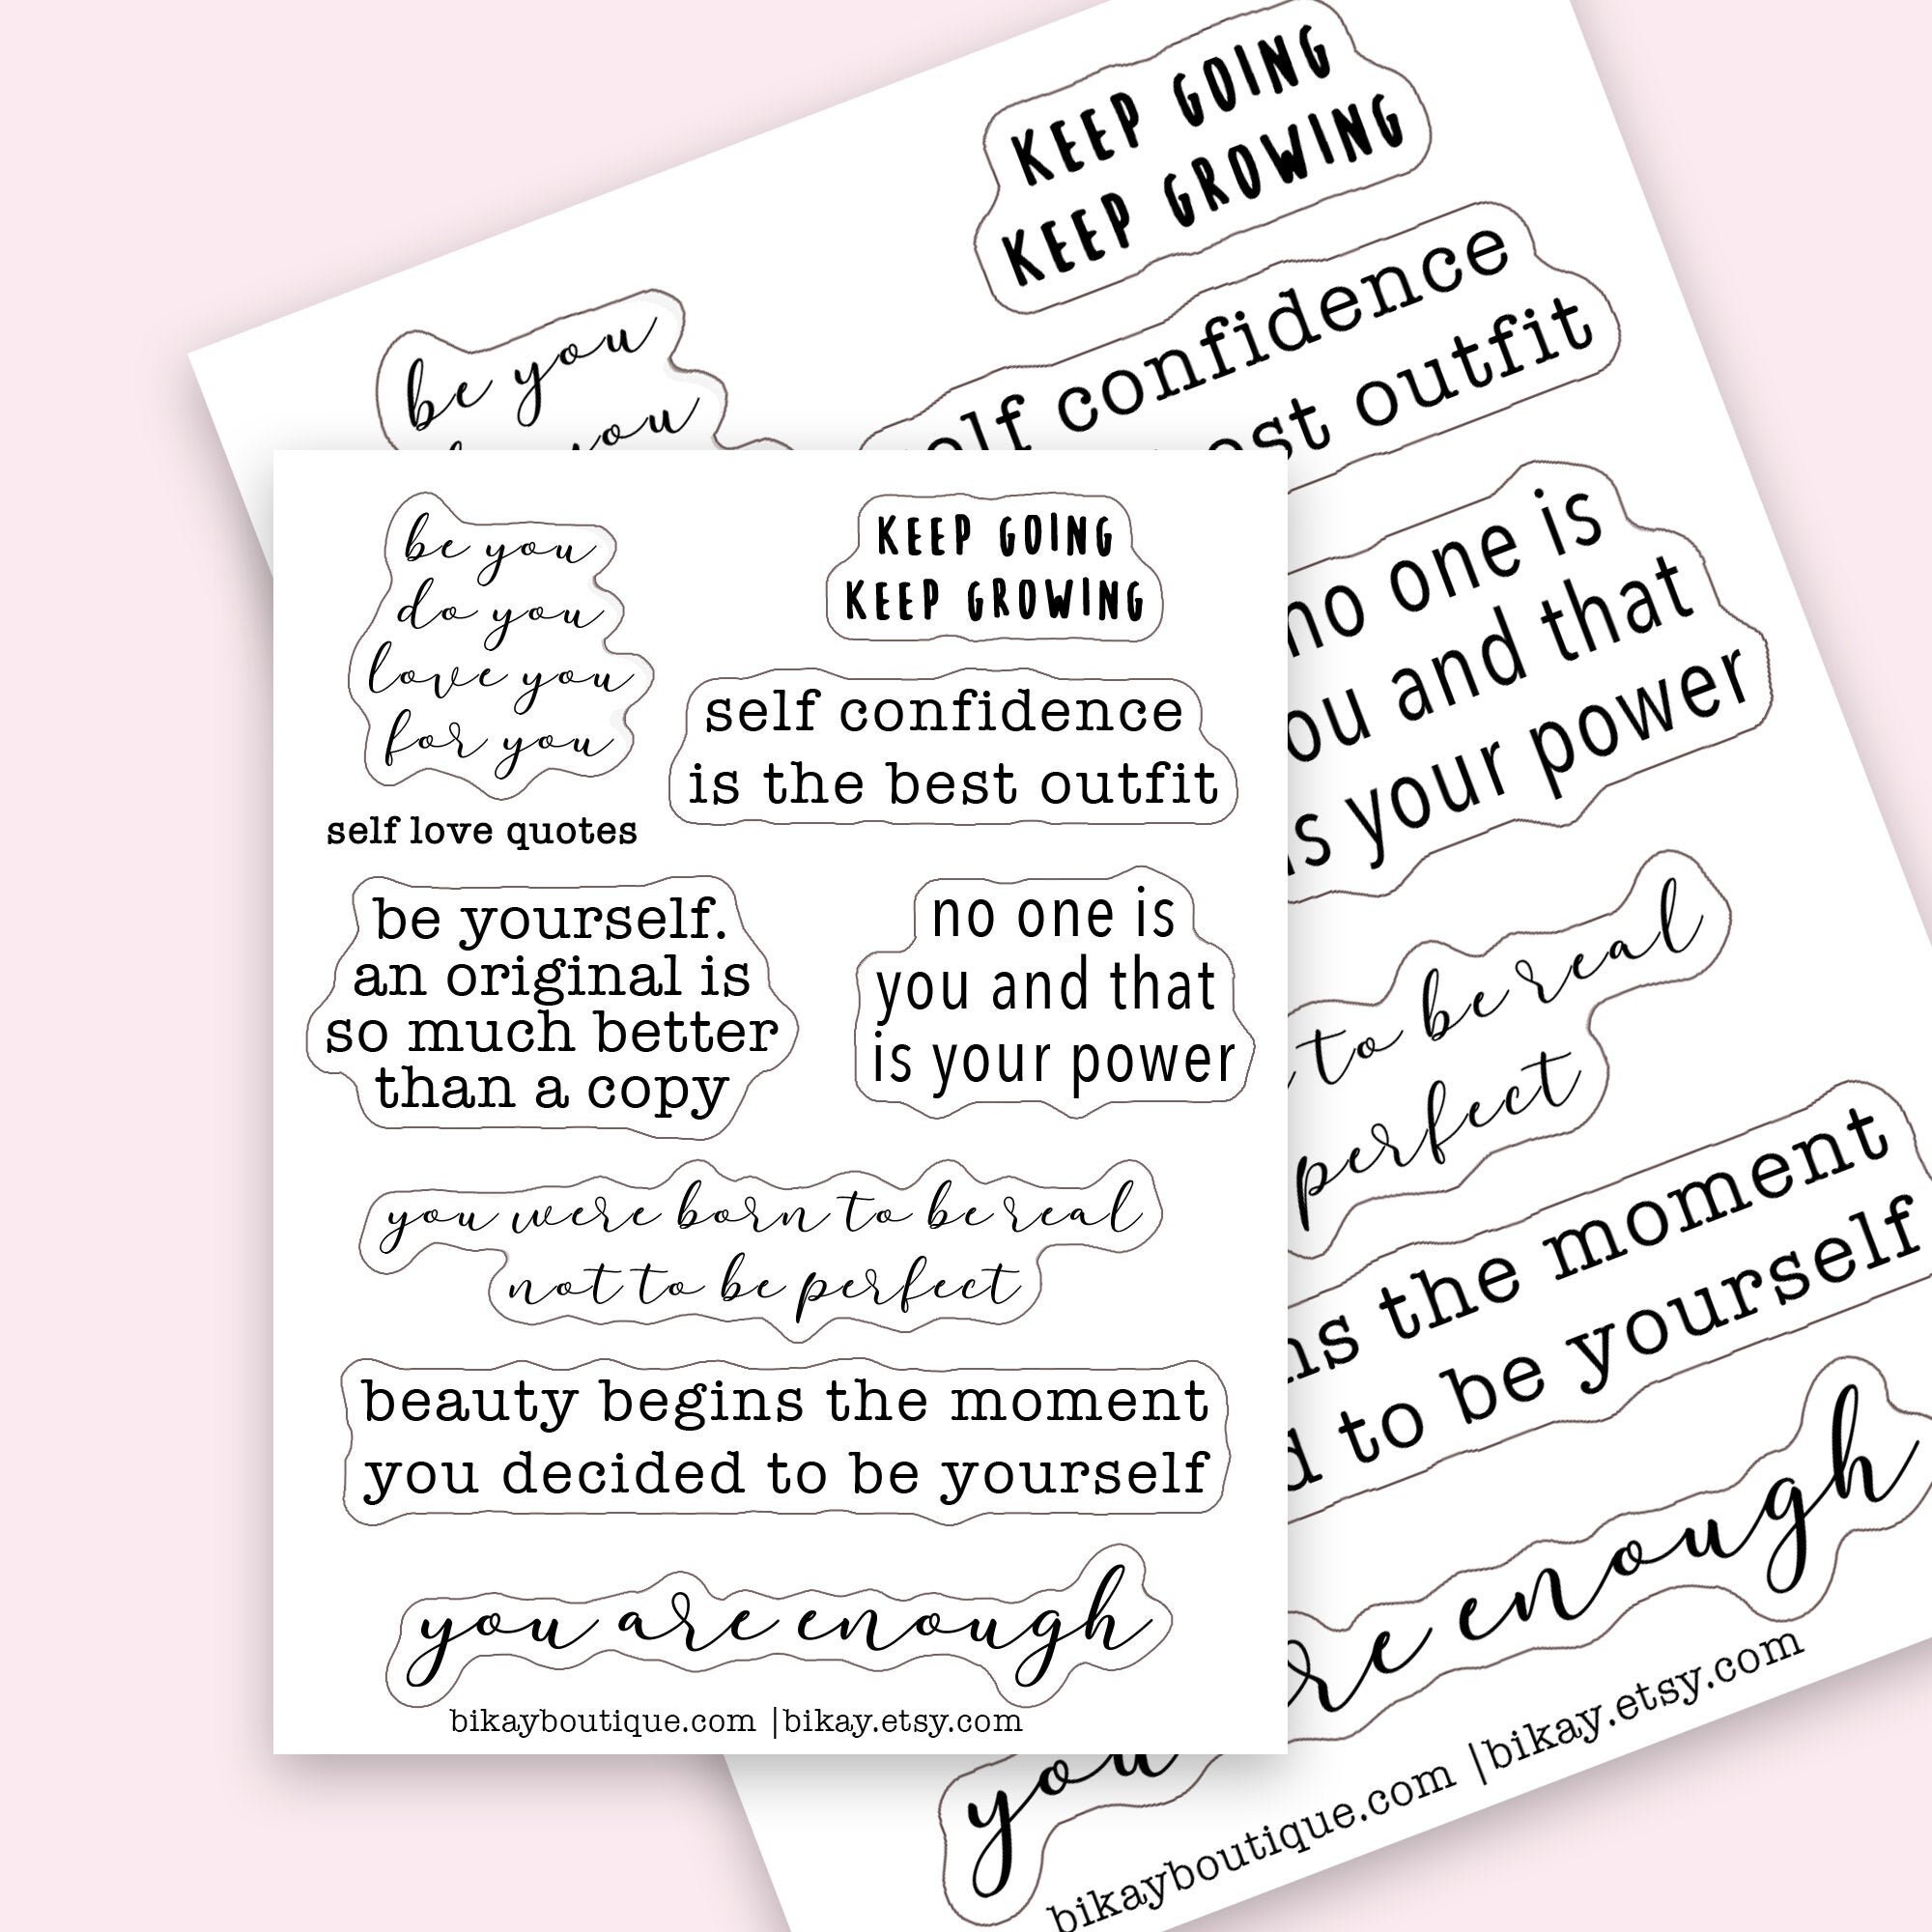 be you
do you
love you
for you
KEEP GOING
KEEP GROWING
self confidence
is the best outfit
self love quotes
be yourself.
an original is
so much better
than a copy
no one is
you and that
is your power
you were born to be real
not to be perfect
beauty begins the moment
you decided to be yourself
you are enough
bikayboutique.com |bikay.etsy.com
be you
you
KEEP GOING
KEEP GROWING
self confidence
best outfit
no one is
you and that
is your power
to be real
perfect
the moment
to be yourself
you are enough
bikayboutique.com |bikay.etsy.com